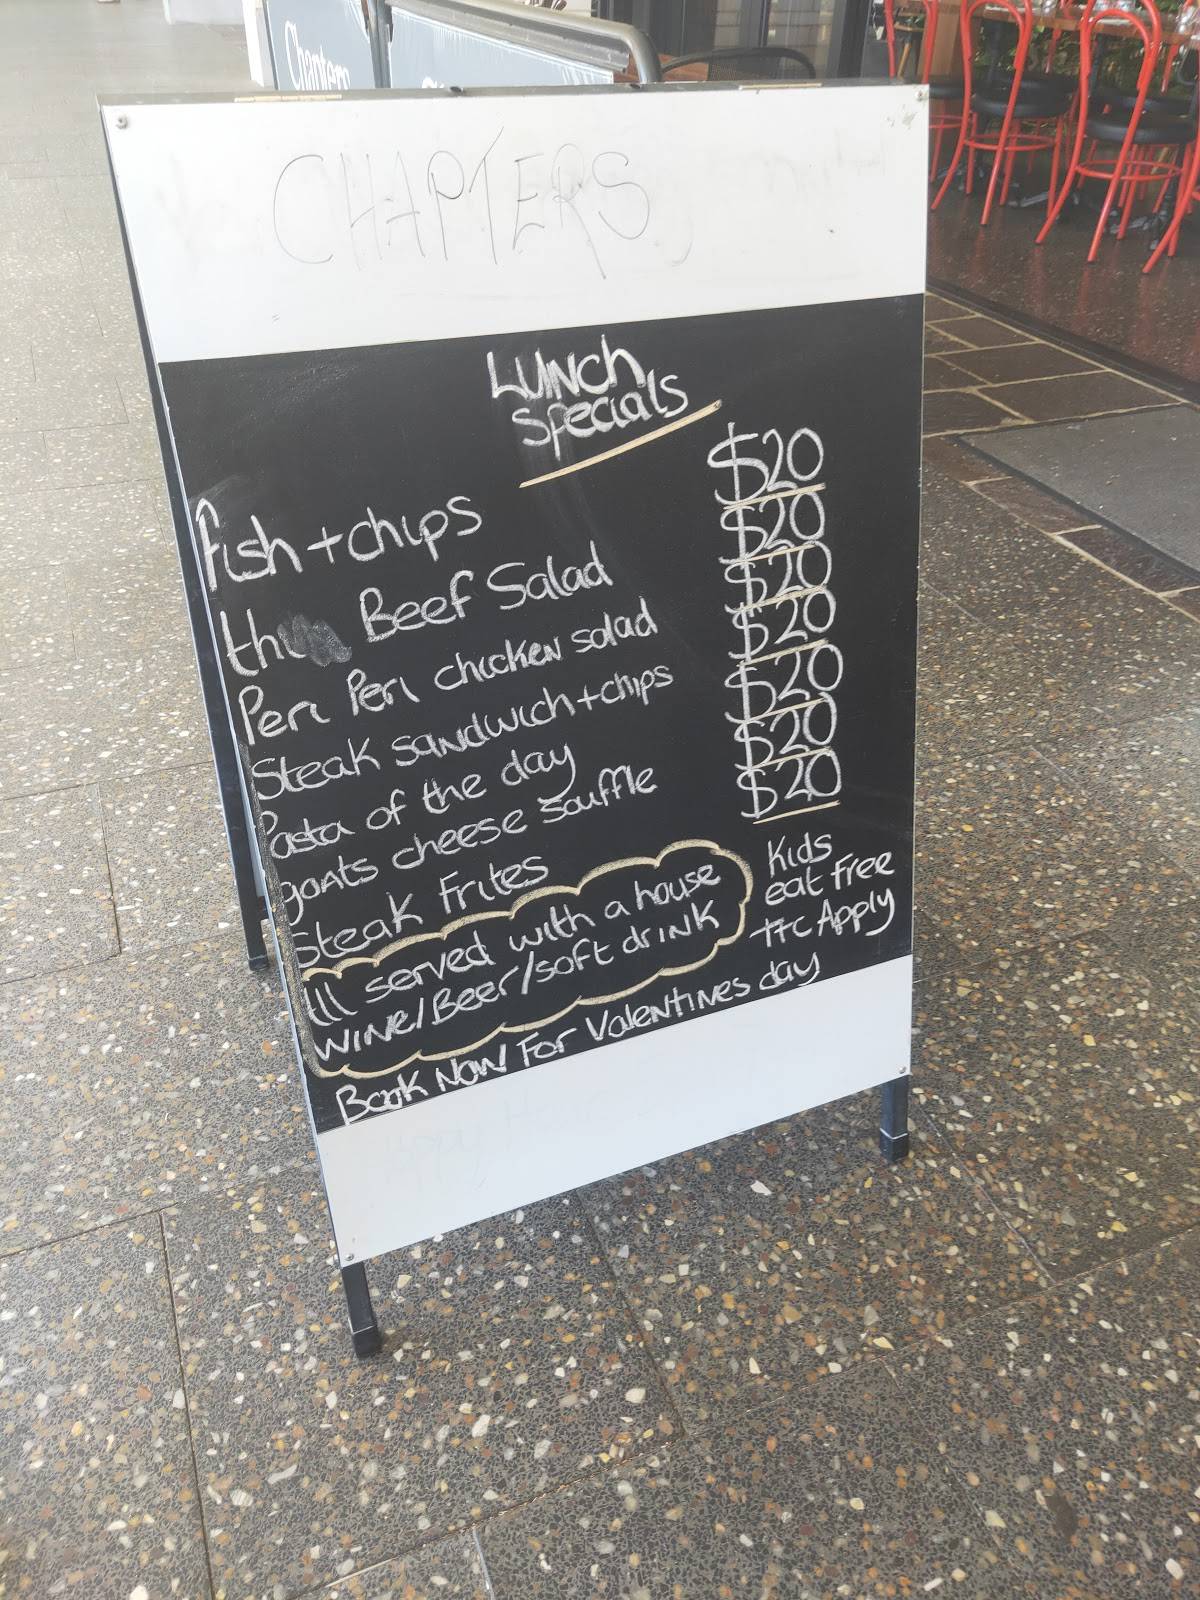 Chapters
CHAPTERS
LUNCH
Specials
fish + chips $20
Beef Salad $20
Peri Peri chicken salad $20
Steak sandwich + chips $20
Pasta of the day $20
goats cheese souffle $20
Steak Frites $20
All served with a house
wine/Beer/soft drink
Kids
eat free
T+C Apply
Book Now For Valentines day